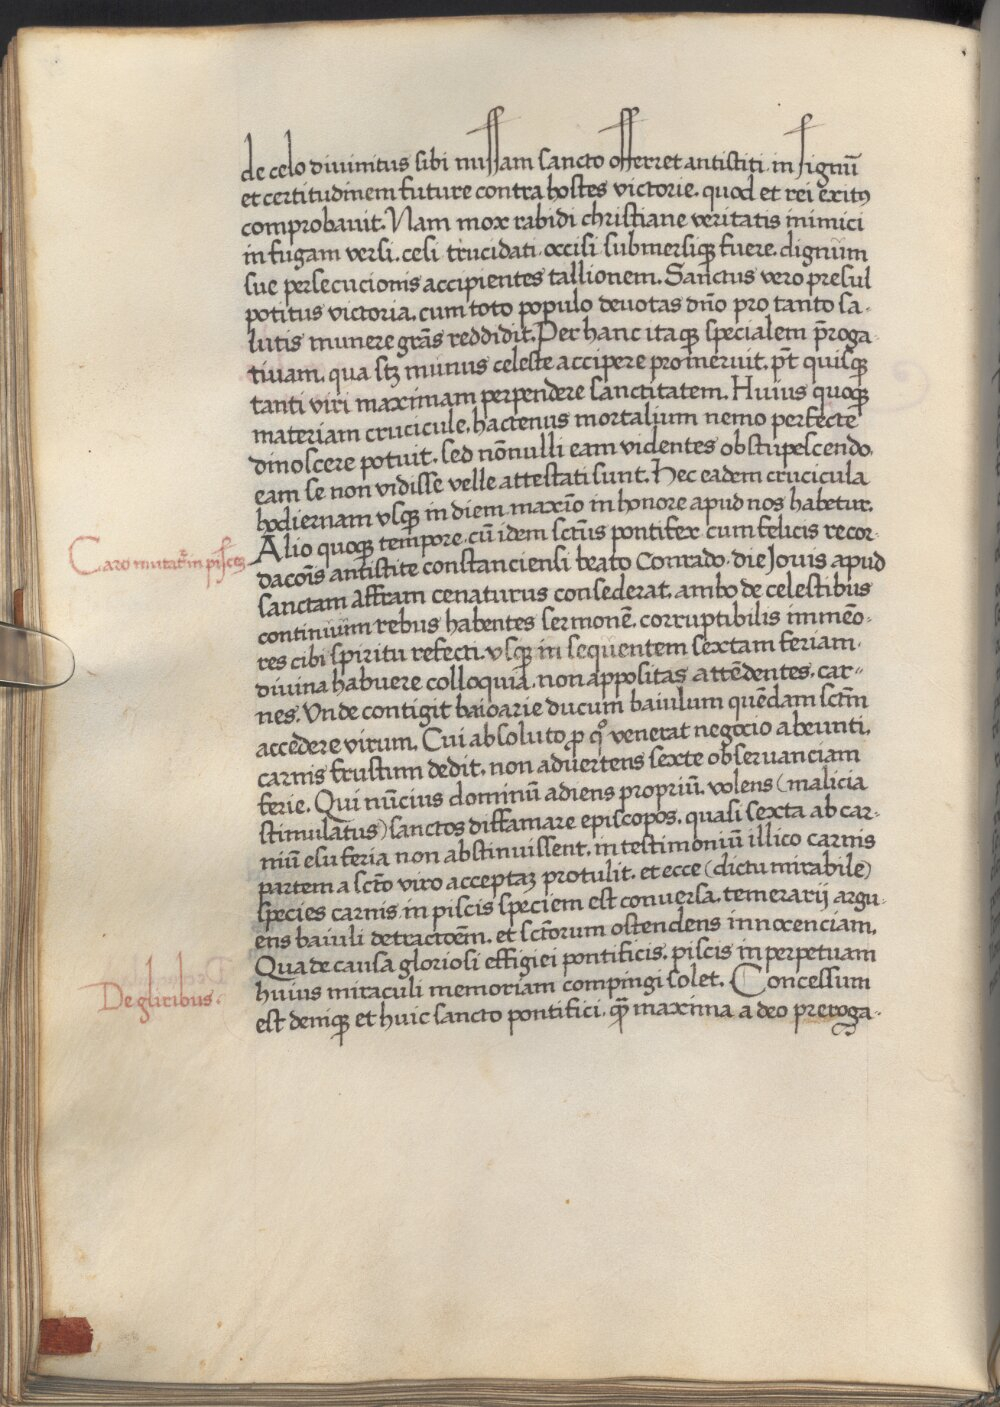 de celo diuinitus sibi missam sancto offerret antistiti in signū
et certitudinem future contra hostes victorie. quod et rei exitꝯ
comprobauit. Nam mox rabidi christiane veritatis inimici
in fugam versi. cesi trucidati occisi submersiqꝫ fuere. dignum
sue persecucionis accipientes tallionem. Sanctus vero presul
potitus victoria. cum toto populo deuotas dn̄o pro tanto sa-
lutis munere gr̄as reddidit. Per hanc itaqꝫ specialem p̄roga
tiuam. qua stꝫ munus celeste accipere promeruit. pn̄t quisqꝫ
tanti viri maximam perpendere sanctitatem. Huius quoqꝫ
materiam crucicule. hactenus mortalium nemo perfecte
dinoscere potuit. sed nōnulli eam videntes obstupescendo.
eam se non vidisse velle attestati sunt. Hec eadem crucicula
hodiernam vsqꝫ in diem maxīo in honore apud nos habetur.
Alio quoqꝫ tempore. cū idem sctūs pontifex cum felicis recor-
dacōis antistite constanciensi beato Conrado. die Jouis apud
sanctam affram cenaturus consederat. ambo de celestibus
continuum rebus habentes sermonē. corruptibilis immēo-
res cibi spiritu refecti. vsqꝫ in sequentem sextam feriam.
diuina habuere colloquia. non appositas attēdentes. car-
nes. Vnde contigit baioarie ducum baiulum quēdam sctm̄
accedere virum. Cui absoluto ꝓ qͦ venerat negocio abeunti.
carnis frustum dedit. non aduertens sexte obseruanciam
ferie. Qui nūcius dominū adiens propriū. volens (malicia
stimulatus) sanctos diffamare episcopos. quasi sexta ab car-
niū esu feria non abstinuissent. in testimoniū illico carnis
partem a scto viro acceptaꝫ protulit. et ecce (dictu mirabile)
species carnis in piscis speciem est conuersa. temerarij argu-
ens baiuli detractoēm. et sctōrum ostendens innocenciam.
Qua de causa gloriosi effigiei pontificis. piscis in perpetuam
huius miraculi memoriam compingi solet. Concessum
est deniqꝫ et huic sancto pontifici. qm̄ maxima a deo preroga-
Caro mutat͛ in pisces
De gliribus.